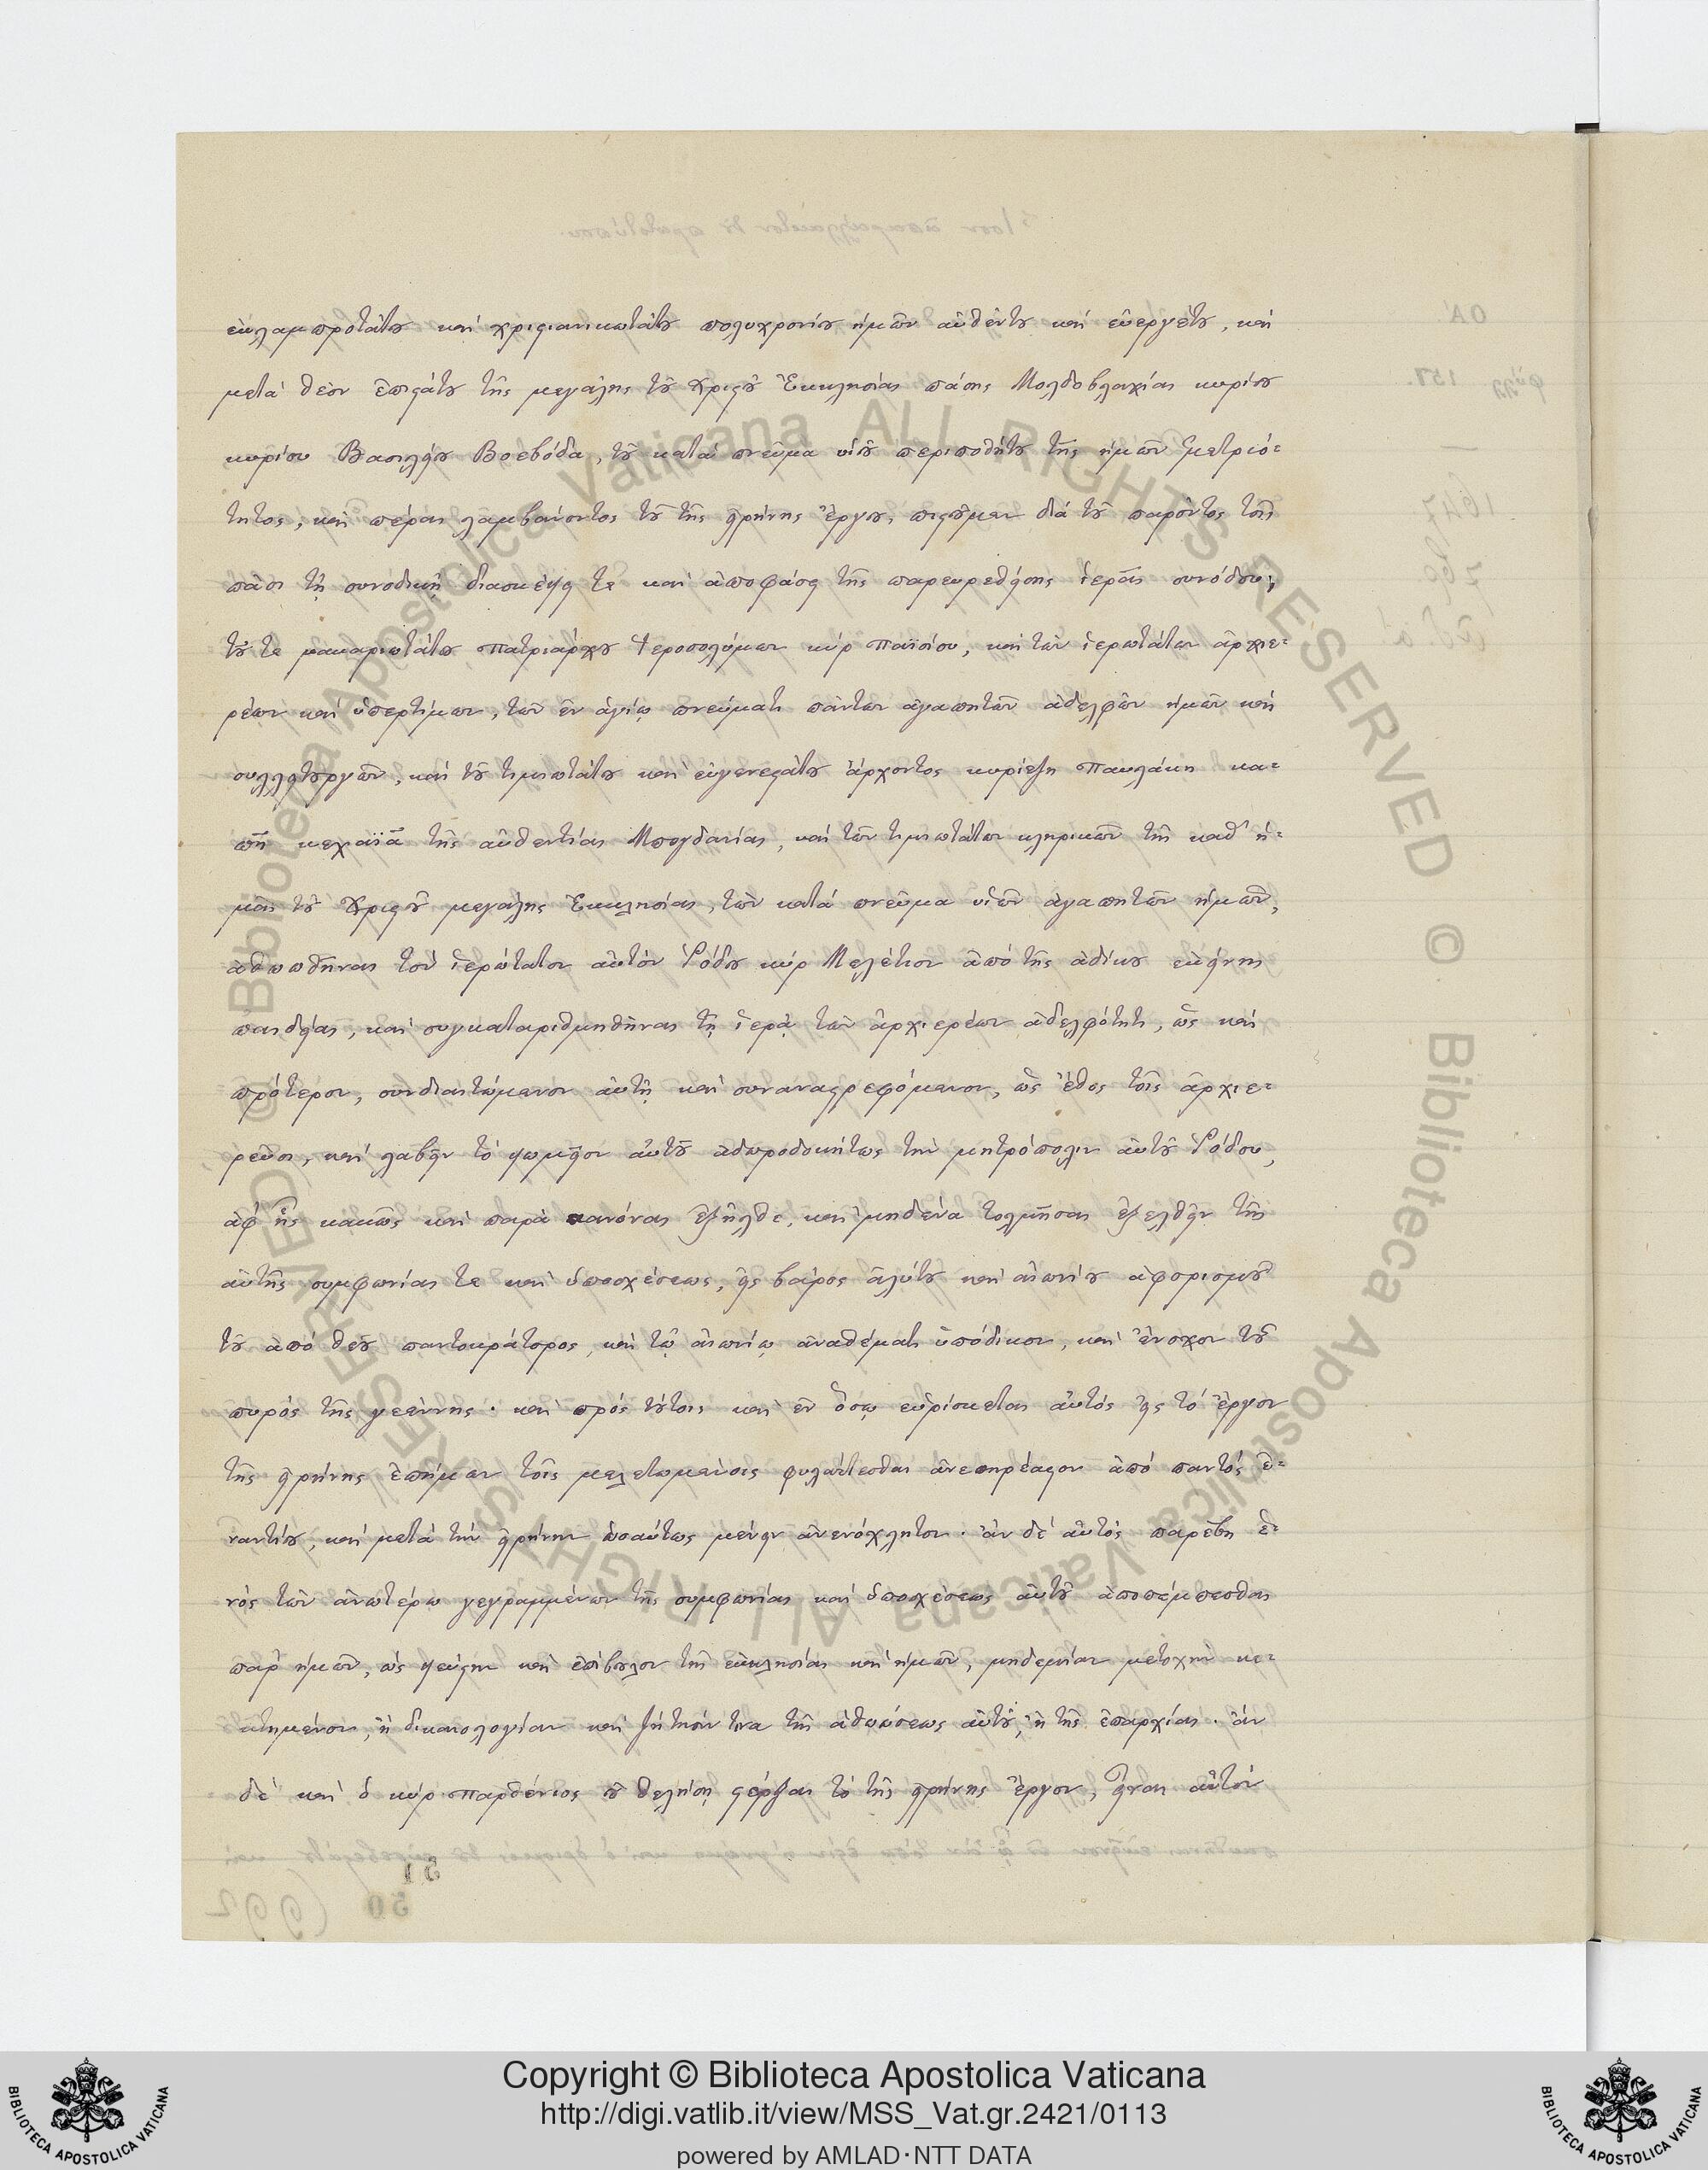 ἐκλαμπροτάτου καὶ χριστιανικωτάτου πολυχρονίου ἡμῶν αὐθέντου καὶ εὐεργέτου, καὶ
μετὰ θεὸν ἐπιστάτου τῆς μεγάλης τοῦ Χριστοῦ Ἐκκλησίας πάσης Μολδοβλαχίας κυρίου
κυρίου Βασιλείου Βοεβόδα, τοῦ κατὰ πνεῦμα υἱοῦ περιποθήτου τῆς ἡμῶν μετριό-
τητος, καὶ πέρας λαμβάνοντος τοῦ τῆς εἰρήνης ἔργου, πιστοῦμεν διὰ τοῦ παρόντος τοῖς
πᾶσι τῇ συνοδικῇ διασκέψει τε καὶ ἀποφάσει τῆς παρευρεθείσης ἱερᾶς συνόδου,
τοῦ τε μακαριωτάτου πατριάρχου Ἱεροσολύμων κὺρ Παϊσίου, καὶ τῶν ἱερωτάτων ἀρχιε-
ρέων καὶ ὑπερτίμων, τῶν ἐν ἁγίῳ πνεύματι πάντων ἀγαπητῶν ἀδελφῶν ἡμῶν καὶ
συλλειτουργῶν, καὶ τοῦ τιμιωτάτου καὶ εὐγενεστάτου ἄρχοντος κυρίτζη Παυλάκη κα-
πῆ κεχαϊᾶ τῆς αὐθεντίας Μπογδανίας, καὶ τῶν τιμιωτάτων κληρικῶν τῆς καθ' ἡ-
μᾶς τοῦ Χριστοῦ μεγάλης Ἐκκλησίας, τῶν κατὰ πνεῦμα υἱῶν ἀγαπητῶν ἡμῶν,
ἀθωωθῆναι τὸν ἱερώτατον αὐτὸν Ῥόδου κὺρ Μελέτιον ἀπὸ τῆς ἀδίκου ἐκείνης
παιδείας, καὶ συγκαταριθμηθῆναι τῇ ἱερᾷ τῶν ἀρχιερέων ἀδελφότητι, ὡς καὶ
πρότερον, συνδιαιτώμενον αὐτῇ καὶ συναναστρεφόμενον, ὡς ἔθος τοῖς ἀρχιε-
ρεῦσι, καὶ λαβεῖν τὸ ψωμεῖον αὐτοῦ ἀδωροδοκήτως τὴν μητρόπολιν αὐτοῦ Ῥόδου,
ἀφ' ἧς κακῶς καὶ παρὰ κανόνας ἐξῆλθε, καὶ μηδένα τολμῆσαι ἐξελθεῖν τῆς
αὐτῆς συμφωνίας τε καὶ ὑποσχέσεως, εἰς βάρος ἀλύτου καὶ αἰωνίου ἀφορισμοῦ
τοῦ ἀπὸ θεοῦ παντοκράτορος, καὶ τῷ αἰωνίῳ ἀναθέματι ὑπόδικον, καὶ ἔνοχον τοῦ
πυρὸς τῆς γεέννης· καὶ πρὸς τούτοις καὶ ἐν ὅσῳ εὑρίσκεται αὐτὸς εἰς τὸ ἔργον
τῆς εἰρήνης ἐπῆμεν τοῖς μελετωμένοις φυλάττεσθαι ἀνεπηρέαστον ἀπὸ παντὸς ἐ-
ναντίου, καὶ μετὰ τὴν εἰρήνην ὡσαύτως μένειν ἀνενόχλητον· ἂν δὲ αὐτὸς παρέβη ἑ-
νὸς τῶν ἀνωτέρω γεγραμμένων τῆς συμφωνίας καὶ ὑποσχέσεως αὐτοῦ ἀποπέμπεσθαι
παρ' ἡμῶν, ὡς ψεύστην καὶ ἐπίβουλον τῆς ἐκκλησίας καὶ ἡμῶν, μηδεμίαν μετοχὴν κε-
κτημένον, ἢ δικαιολογίαν καὶ ζήτησίν τινα τῆς ἀθωώσεως αὐτοῦ, ἢ τῆς ἐπαρχίας· ἂν
δὲ καὶ ὁ κὺρ Παρθένιος οὐ θελήσῃ στέρξαι τὸ τῆς εἰρήνης ἔργον, εἶναι αὐτὸν
Copyright © Biblioteca Apostolica Vaticana
http://digi.vatlib.it/view/MSS_Vat.gr.2421/0113
powered by AMLAD·NTT DATA